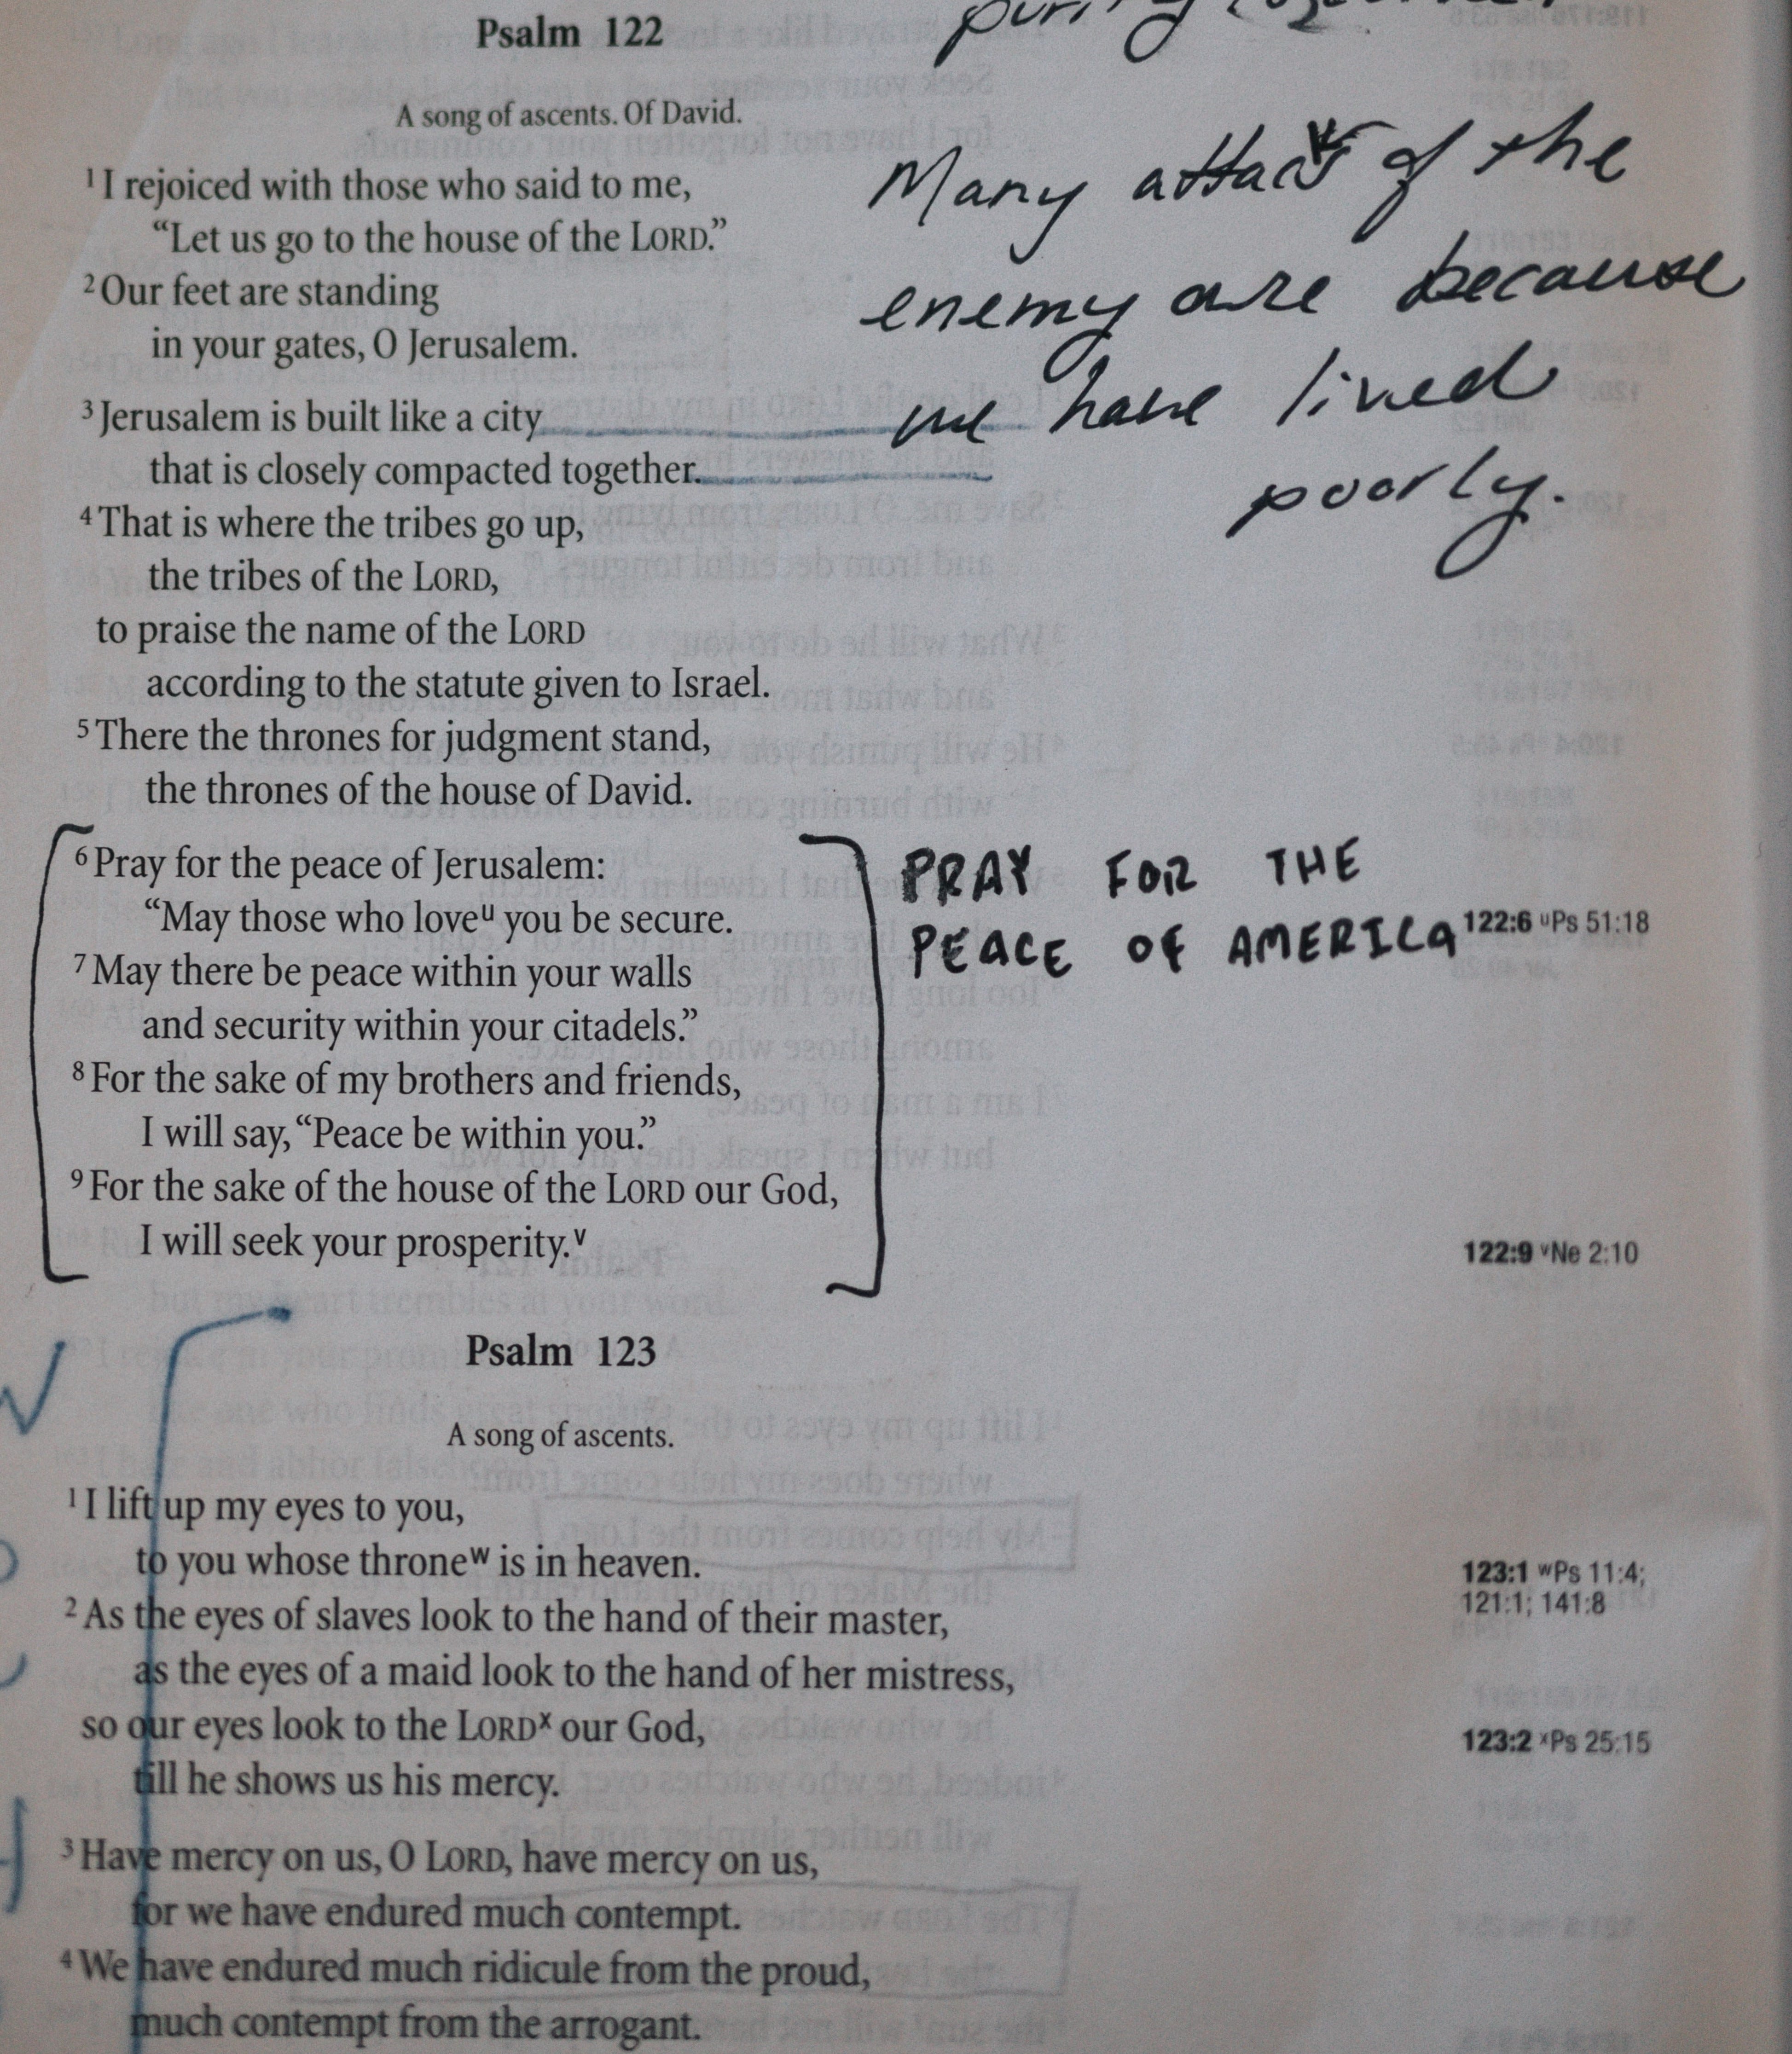 Psalm 122
A song of ascents. Of David.
1 I rejoiced with those who said to me,
“Let us go to the house of the LORD.”
2 Our feet are standing
in your gates, O Jerusalem.
3 Jerusalem is built like a city
that is closely compacted together.
4 That is where the tribes go up,
the tribes of the LORD,
to praise the name of the LORD
according to the statute given to Israel.
5 There the thrones for judgment stand,
the thrones of the house of David.
6 Pray for the peace of Jerusalem:
“May those who love u you be secure.
7 May there be peace within your walls
and security within your citadels.”
8 For the sake of my brothers and friends,
I will say, “Peace be within you.”
9 For the sake of the house of the LORD our God,
I will seek your prosperity. v
Many attacks of the
enemy are because
we have lived
poorly.
PRAY FOR THE
PEACE OF AMERICA
122:6 u Ps 51:18
122:9 v Ne 2:10
Psalm 123
A song of ascents.
1 I lift up my eyes to you,
to you whose throne w is in heaven.
2 As the eyes of slaves look to the hand of their master,
as the eyes of a maid look to the hand of her mistress,
so our eyes look to the LORD x our God,
till he shows us his mercy.
3 Have mercy on us, O LORD, have mercy on us,
for we have endured much contempt.
4 We have endured much ridicule from the proud,
much contempt from the arrogant.
123:1 w Ps 11:4;
121:1; 141:8
123:2 x Ps 25:15